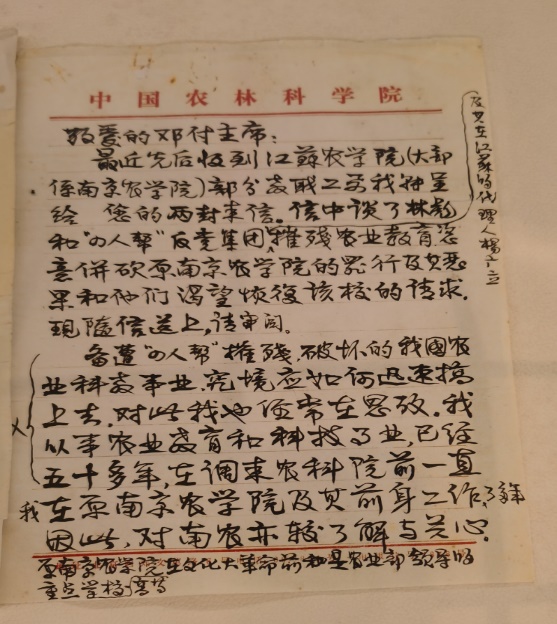 中国农林科学院
敬爱的邓付主席：
最近先后收到江苏农学院(大部
系南京农学院)部分教职工要我转呈
给 您的两封来信。信中谈了林彪
和"四人帮"反党集团摧残农业教育恣
意併砍原南京农学院的罪行及其恶
果和他们渴望恢復该校的请求。
现随信送上，请审阅。
及其在江苏的代理人杨广立
备遭"四人帮"摧残、破坏的我国农
业科教事业，究境应如何迅速搞
上去，对此我也经常在思考。我
从事农业教育和科技事业，已经
五十多年，在调来农科院前一直
在原南京农学院及其前身工作，了
我
因此，对南农亦较了解与关心。
原南京农学院在文化大革命前和是农业部领导的
重点学校